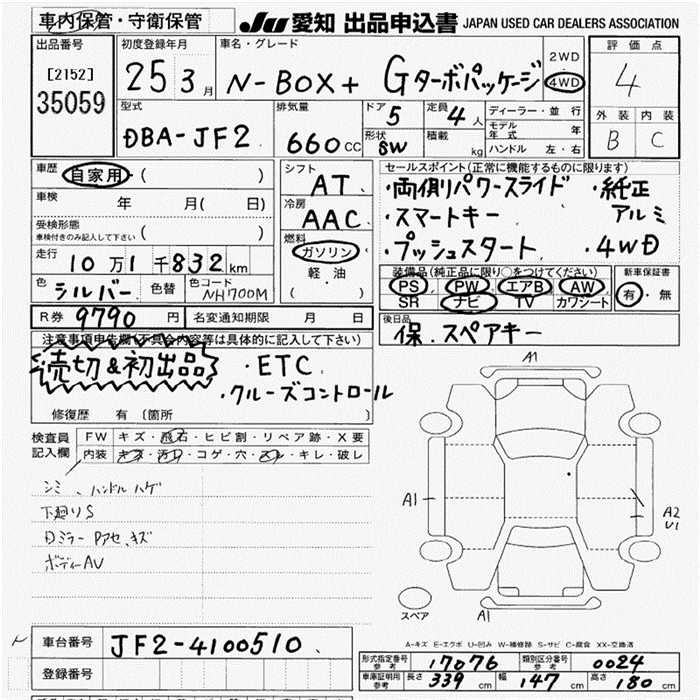 車内保管・守衛保管
JU 愛知 出品申込書 JAPAN USED CAR DEALERS ASSOCIATION
出品番号 初度登録年月 車名・グレード 2WD 評価点
[2152] 25 3月 N-BOX+ Gターボパッケージ 4WD 4
35059
型式 排気量 ドア 5 定員 4人 ディーラー・並行 外装 内装
DBA-JF2 660cc 形状 SW 積載 kg モデル年式 年 B C
ハンドル 左・右
車歴 自家用・( ) シフト AT セールスポイント(正常に機能するものに限ります)
車検 年 月( 日) 冷房 AAC ・両側パワースライド ・純正アルミ
受検形態 ・スマートキー
車検付きのみ記入して下さい ( ) 燃料 ・プッシュスタート ・4WD
走行 10万1千832km ガソリン
軽・油
( )
装備品(純正品に限り○をつけてください) 新車保証書
色 シルバー 色替 色コード NH700M PS PW エアB AW 有・無
SR ナビ TV カワシート
R券 9790円 名変通知期限 月 日 後日品
保.スペアキー
注意事項申告欄(不具合内容等は具体的に記入して下さい)
売切&初出品 ・ETC
・クルーズコントロール
修復歴 有 (箇所 )
検査員記入欄 FW キズ・飛石・ヒビ割・リペア跡・X要
内装 キズ・汚れ・コゲ・穴・スレ・キレ・破レ
シミ、ハンドルハゲ
下廻りS
Dミラー Pアセ、キズ
ボディーAU
A1
A1
A2
U1
スペア
A1
A-キズ E-エクボ U-凹み W-補修跡 S-サビ C-腐食 XX-交換済
車台番号 JF2-4100510
登録番号
形式指定番号 参考 17076 類別区分番号 参考 0024
車庫証明用 参考 長さ 339cm 幅 147cm 高さ 180cm